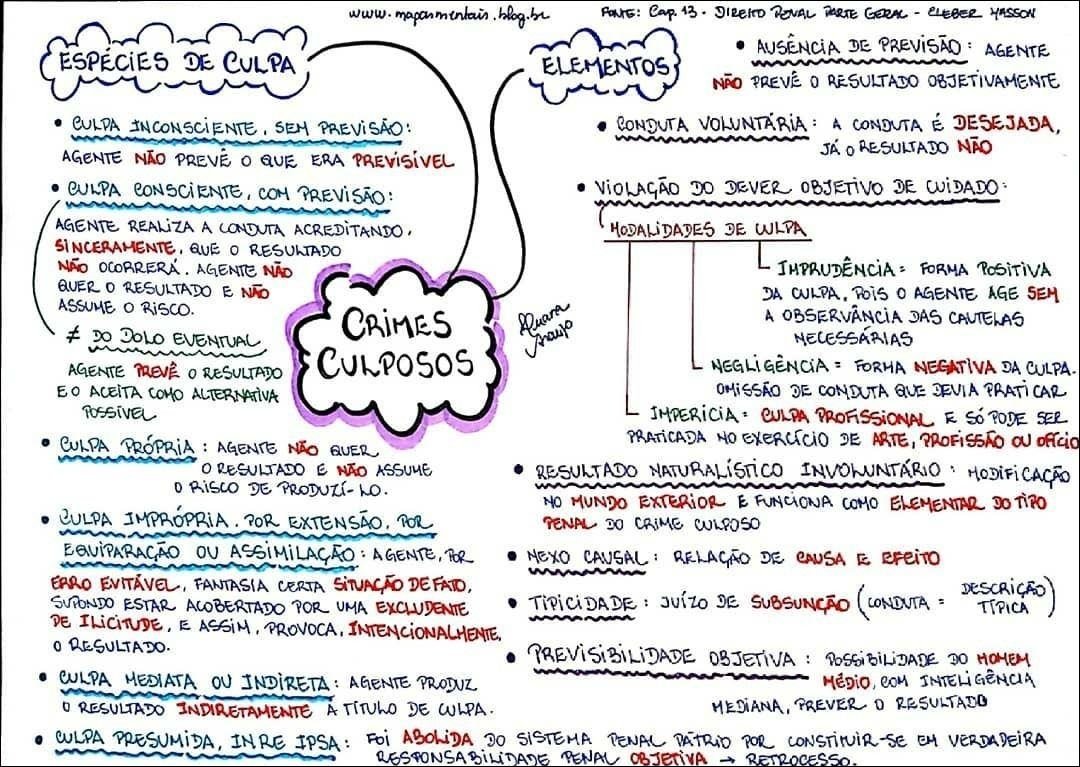 www.mapasmentais.blog.br
FONTE: CAP. 13 - DIREITO PENAL PARTE GERAL - CLEBER MASSON
ESPÉCIES DE CULPA
• CULPA INCONSCIENTE, SEM PREVISÃO:
AGENTE NÃO PREVÊ O QUE ERA PREVISÍVEL
• CULPA CONSCIENTE, COM PREVISÃO:
AGENTE REALIZA A CONDUTA ACREDITANDO,
SINCERAMENTE, QUE O RESULTADO
NÃO OCORRERÁ. AGENTE NÃO
QUER O RESULTADO E NÃO
ASSUME O RISCO.
≠ DO DOLO EVENTUAL
AGENTE PREVÊ O RESULTADO
E O ACEITA COMO ALTERNATIVA
POSSÍVEL
• CULPA PRÓPRIA: AGENTE NÃO QUER
O RESULTADO E NÃO ASSUME
O RISCO DE PRODUZÍ-LO.
• CULPA IMPRÓPRIA, POR EXTENSÃO, POR
EQUIPARAÇÃO OU ASSIMILAÇÃO: AGENTE, POR
ERRO EVITÁVEL, FANTASIA CERTA SITUAÇÃO DE FATO,
SUPONDO ESTAR ACOBERTADO POR UMA EXCLUDENTE
DE ILICITUDE, E ASSIM, PROVOCA, INTENCIONALMENTE,
O RESULTADO.
• CULPA MEDIATA OU INDIRETA: AGENTE PRODUZ
O RESULTADO INDIRETAMENTE A TÍTULO DE CULPA.
• CULPA PRESUMIDA, IN RE IPSA: FOI ABOLIDA DO SISTEMA PENAL PÁTRIO POR CONSTITUIR-SE EM VERDADEIRA
RESPONSABILIDADE PENAL OBJETIVA → RETROCESSO.
CRIMES
CULPOSOS
Alvara
Araujo
ELEMENTOS
• AUSÊNCIA DE PREVISÃO: AGENTE
NÃO PREVÊ O RESULTADO OBJETIVAMENTE
• CONDUTA VOLUNTÁRIA: A CONDUTA É DESEJADA,
JÁ O RESULTADO NÃO
• VIOLAÇÃO DO DEVER OBJETIVO DE CUIDADO:
MODALIDADES DE CULPA
IMPRUDÊNCIA = FORMA POSITIVA
DA CULPA, POIS O AGENTE AGE SEM
A OBSERVÂNCIA DAS CAUTELAS
NECESSÁRIAS
NEGLIGÊNCIA = FORMA NEGATIVA DA CULPA.
OMISSÃO DE CONDUTA QUE DEVIA PRATICAR
IMPERÍCIA = CULPA PROFISSIONAL E SÓ PODE SER
PRATICADA NO EXERCÍCIO DE ARTE, PROFISSÃO OU OFÍCIO
• RESULTADO NATURALÍSTICO INVOLUNTÁRIO: MODIFICAÇÃO
NO MUNDO EXTERIOR E FUNCIONA COMO ELEMENTAR DO TIPO
PENAL DO CRIME CULPOSO
• NEXO CAUSAL: RELAÇÃO DE CAUSA E EFEITO
• TIPICIDADE: JUÍZO DE SUBSUNÇÃO (CONDUTA = DESCRIÇÃO
TÍPICA)
• PREVISIBILIDADE OBJETIVA: POSSIBILIDADE DO HOMEM
MÉDIO, COM INTELIGÊNCIA
MEDIANA, PREVER O RESULTADO